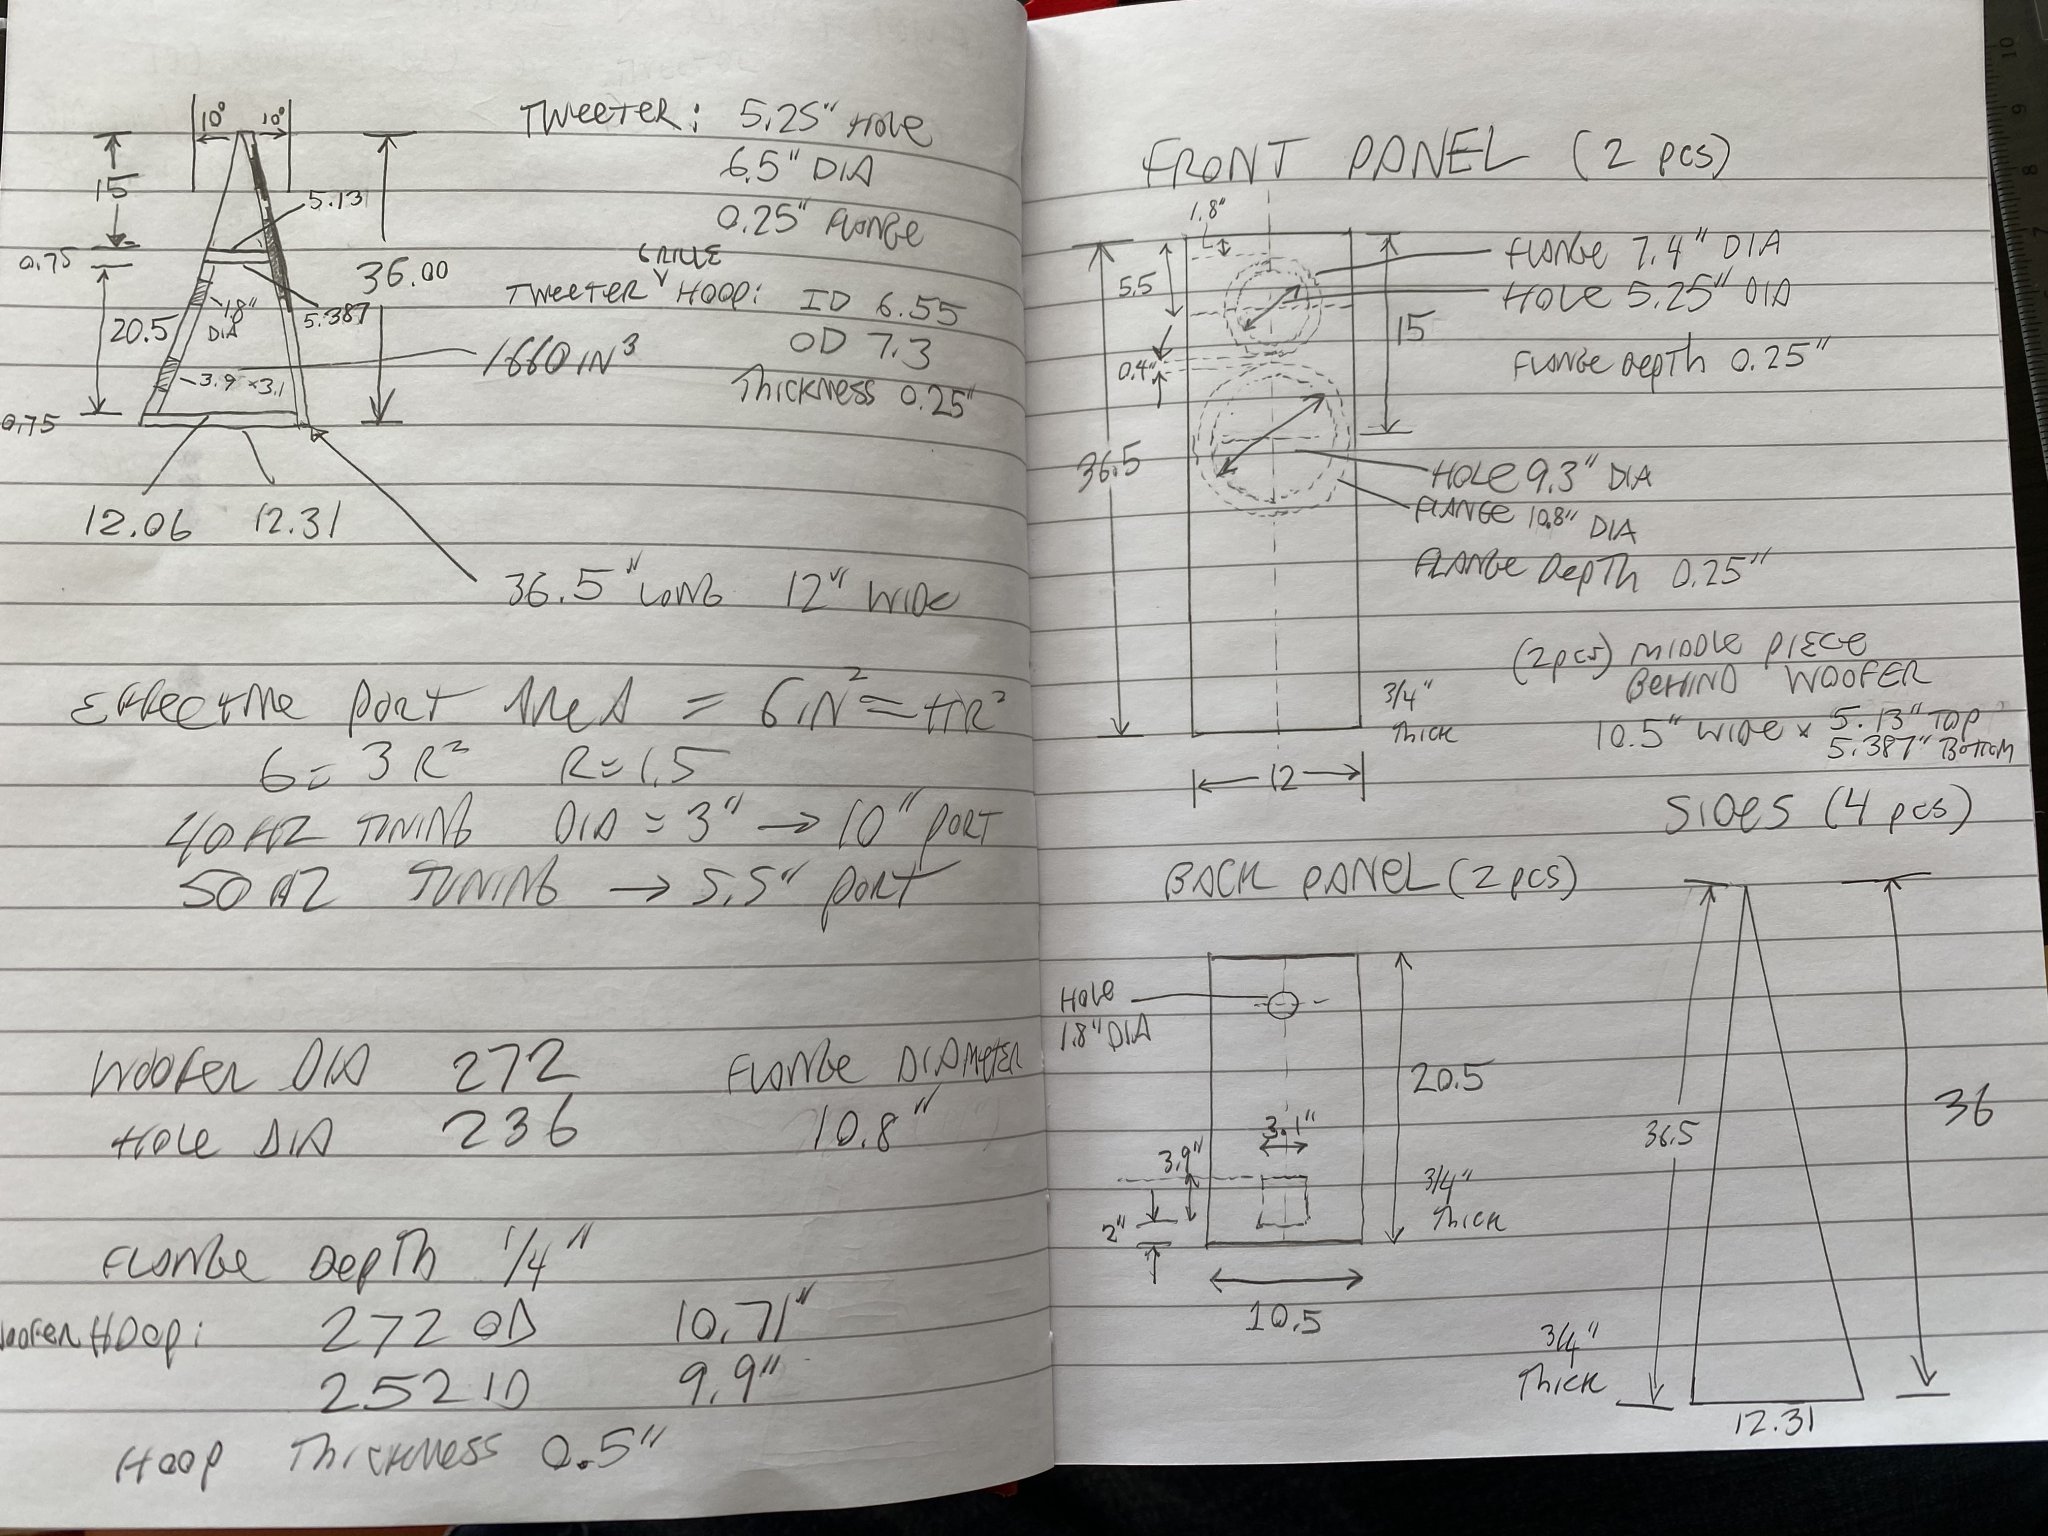 10° 10°
15
5.131
0.75
36.00
1.8"
DIA
5.387
20.5
1660 IN³
3.9 x 3.1
0.75
12.06 12.31
36.5" LONG 12" WIDE
TWEETER: 5.25" HOLE
6.5" DIA
0.25" FLANGE
GRILLE
TWEETER HOOP: ID 6.55
OD 7.3
THICKNESS 0.25"
EFFECTIVE PORT AREA = 6 IN² = πR²
6 = 3 R² R = 1.5
40 HZ TUNING DIA = 3" → 10" PORT
50 HZ TUNING → 5.5" PORT
WOOFER DIA 272 FLANGE DIAMETER
HOLE DIA 236 10.8"
FLANGE DEPTH 1/4"
WOOFER HOOP: 272 OD 10.71"
252 ID 9.9"
HOOP THICKNESS 0.5"
FRONT PANEL (2 pcs)
1.8"
5.5
0.4"
36.5
15
12
FLANGE 7.4" DIA
HOLE 5.25" DIA
FLANGE DEPTH 0.25"
HOLE 9.3" DIA
FLANGE 10.8" DIA
FLANGE DEPTH 0.25"
3/4"
THICK
(2 pcs) MIDDLE PIECE
BEHIND WOOFER
10.5" WIDE x 5.13" TOP
5.387" BOTTOM
BACK PANEL (2 pcs)
HOLE
1.8" DIA
20.5
3.1"
3.9"
2"
3/4"
THICK
10.5
SIDES (4 pcs)
36.5
36
3/4"
THICK
12.31
10
9
8
7